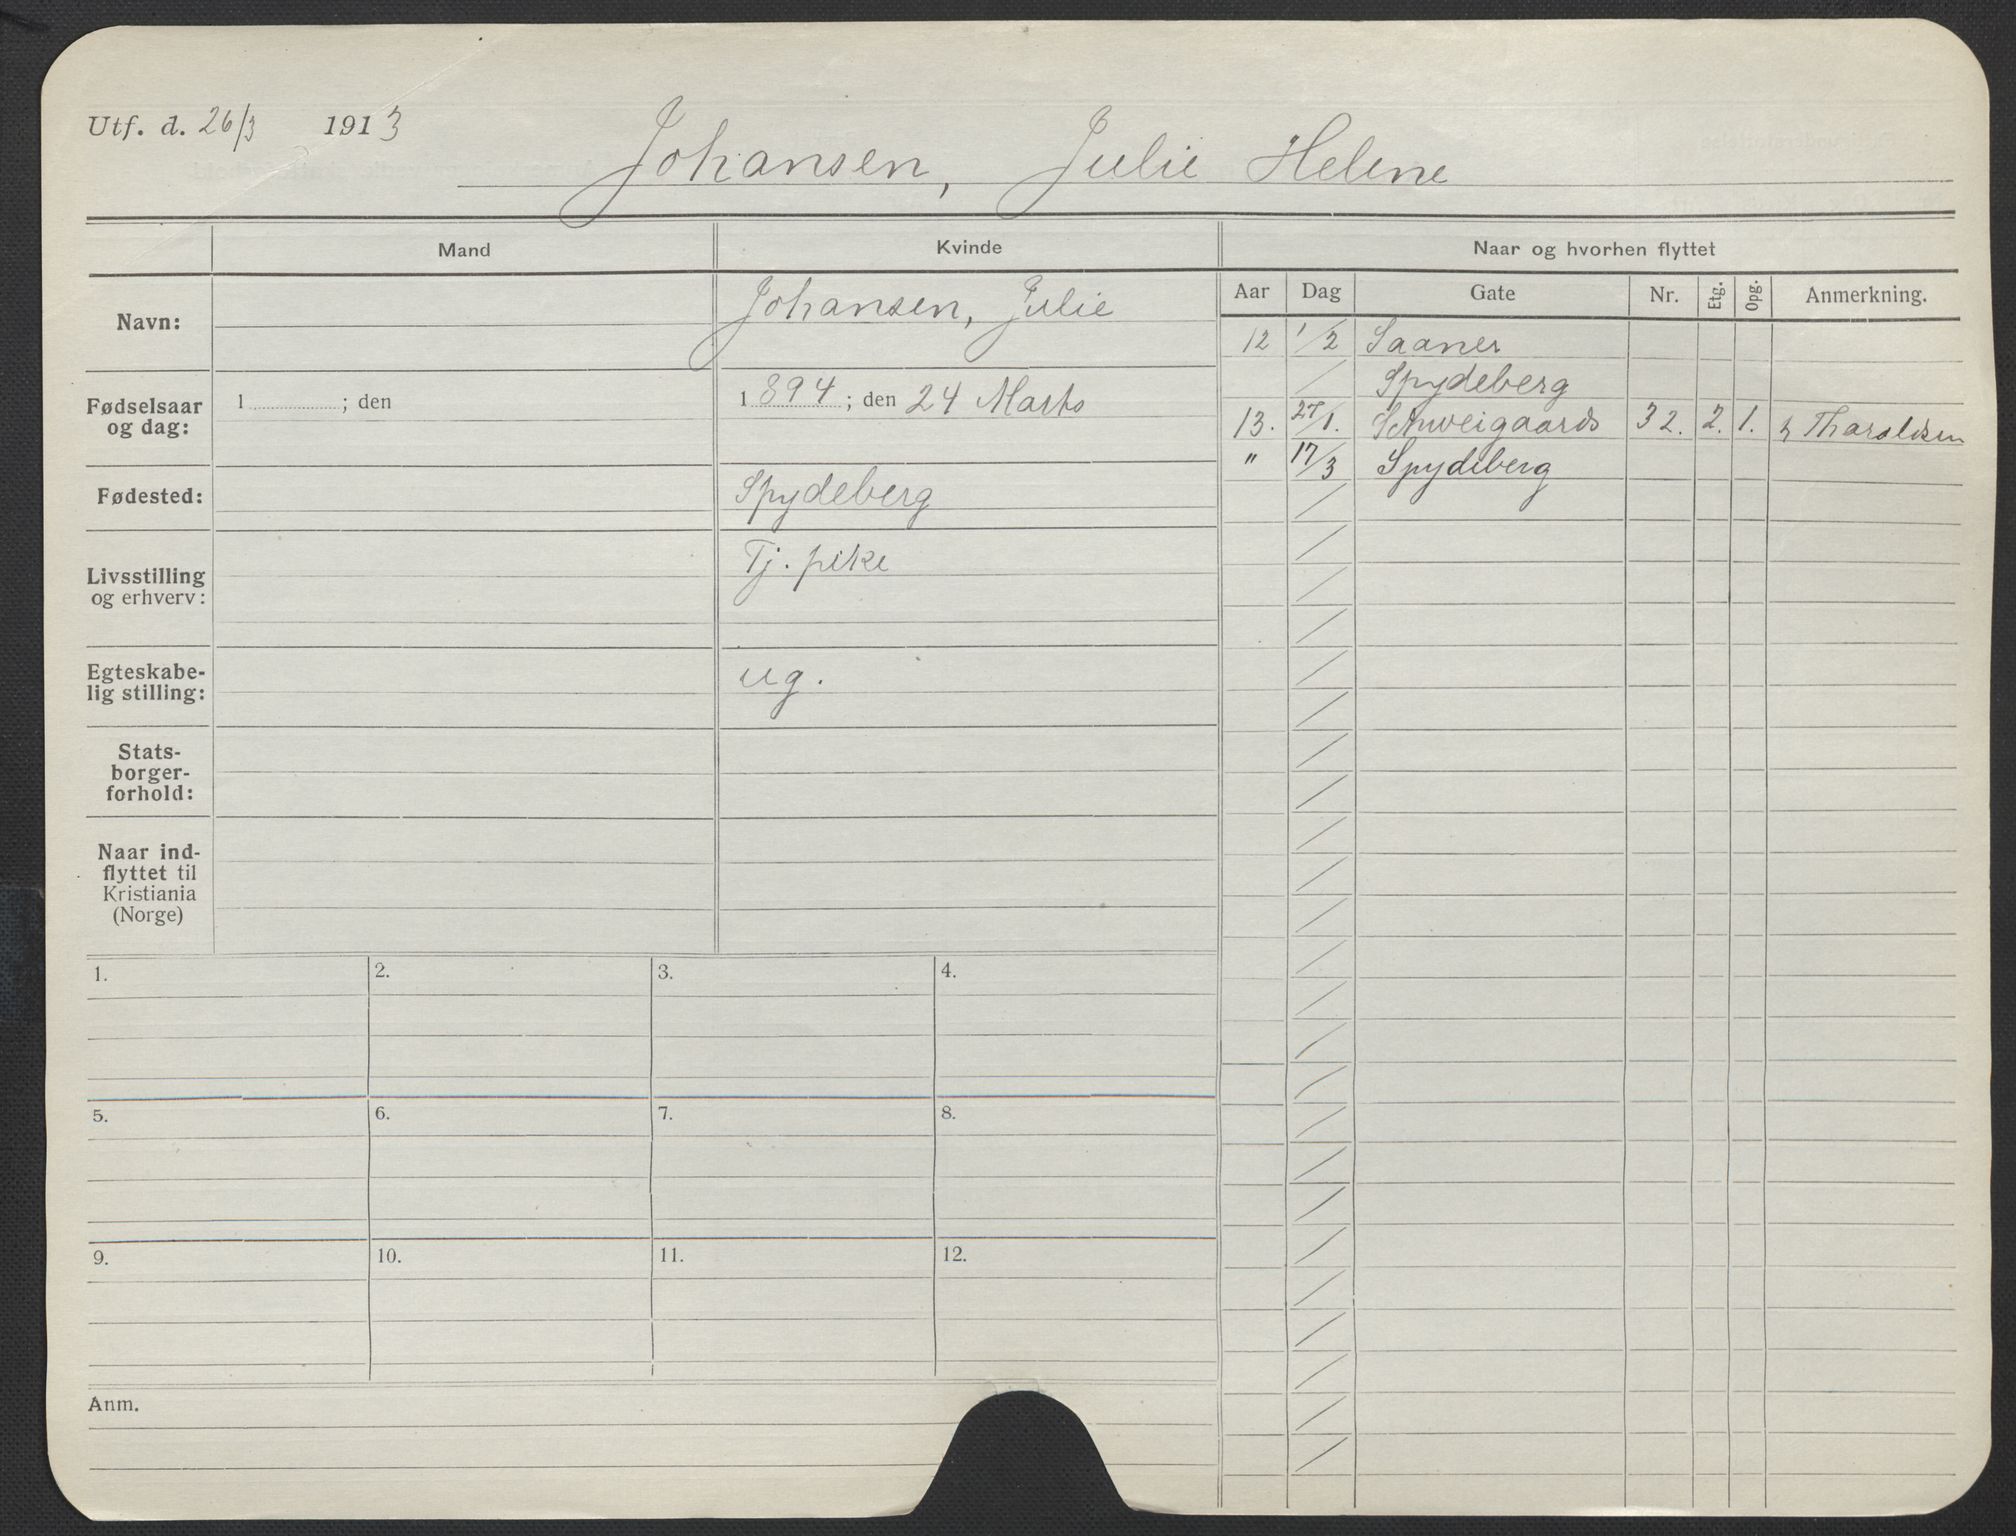 Utf. d. 26/3 1913
Johansen, Julie Helene
Mand
Kvinde
Naar og hvorhen flyttet
Navn:
Johansen, Julie
Fødselsaar og dag:
1 ; den
1 894 ; den 24 Marts
Fødested:
Spydeberg
Livsstilling og erhverv:
Tj. pike
Egteskabe-
lig stilling:
ug.
Stats-
borger-
forhold:
Naar ind-
flyttet til
Kristiania
(Norge)
Aar Dag Gate Nr. Etg. Opg. Anmerkning.
12 1/2 Saaner
Spydeberg
13. 27/1. Schweigaards 32. 2. 1. h Tharaldsen
" 17/3 Spydeberg
1. 2. 3. 4.
5. 6. 7. 8.
9. 10. 11. 12.
Anm.